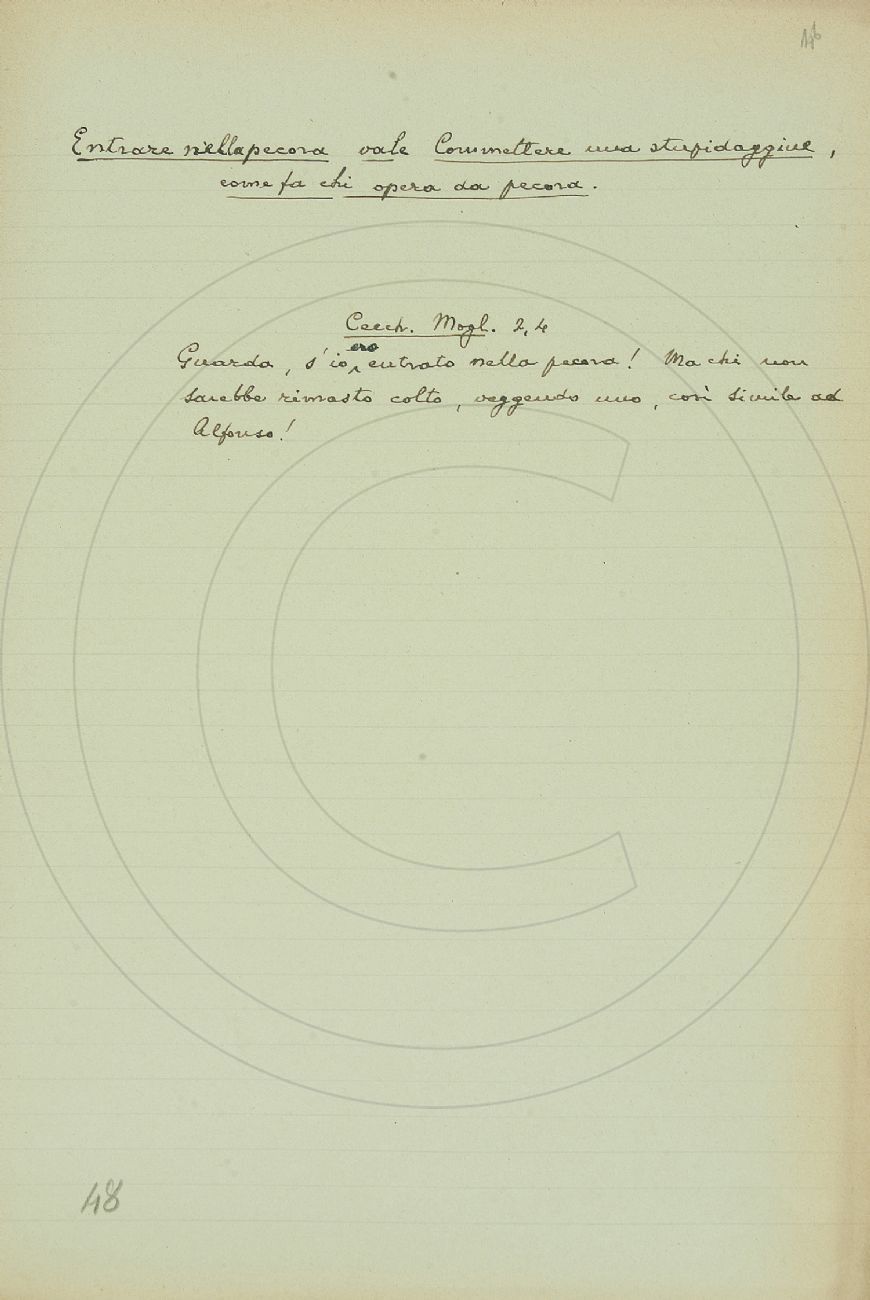 Entrare nella pecora vale Commettere una stupidaggine,
come fa chi opera da pecora.
Cecch. Mogl. 2,4
Guarda, s'io ero entrato nella pecora! Ma chi non
sarebbe rimasto colto, veggendo uno, così simile ad
Alfonso!
48